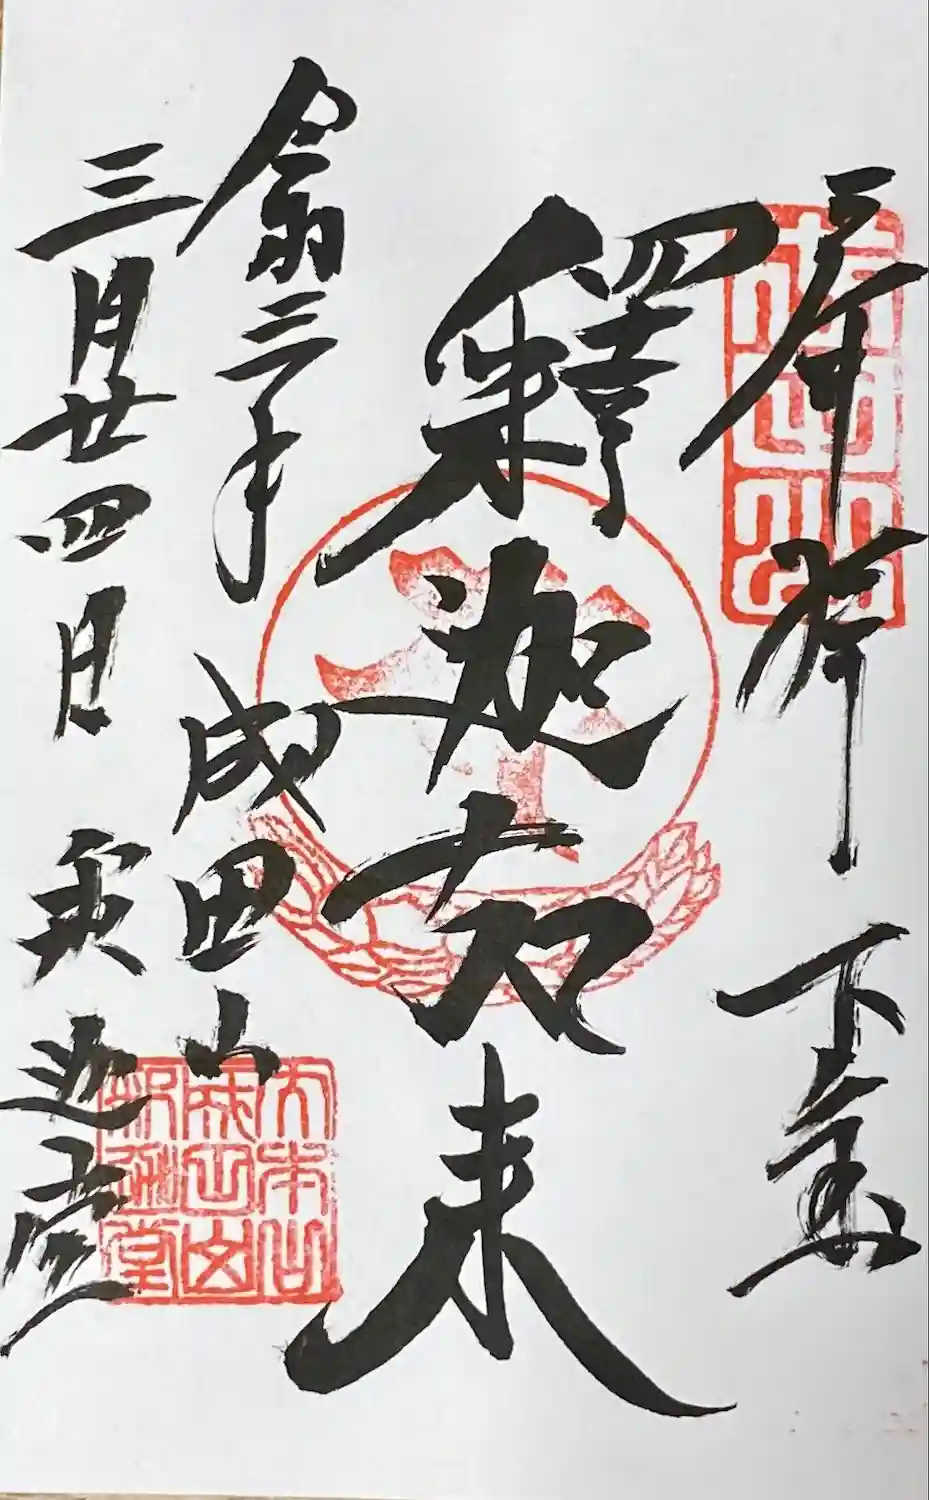 成田山
奉拝 下総
釋迦如来
令和三年 成田山
三月廿四日 釈迦堂
大本山
成田山
釈迦堂